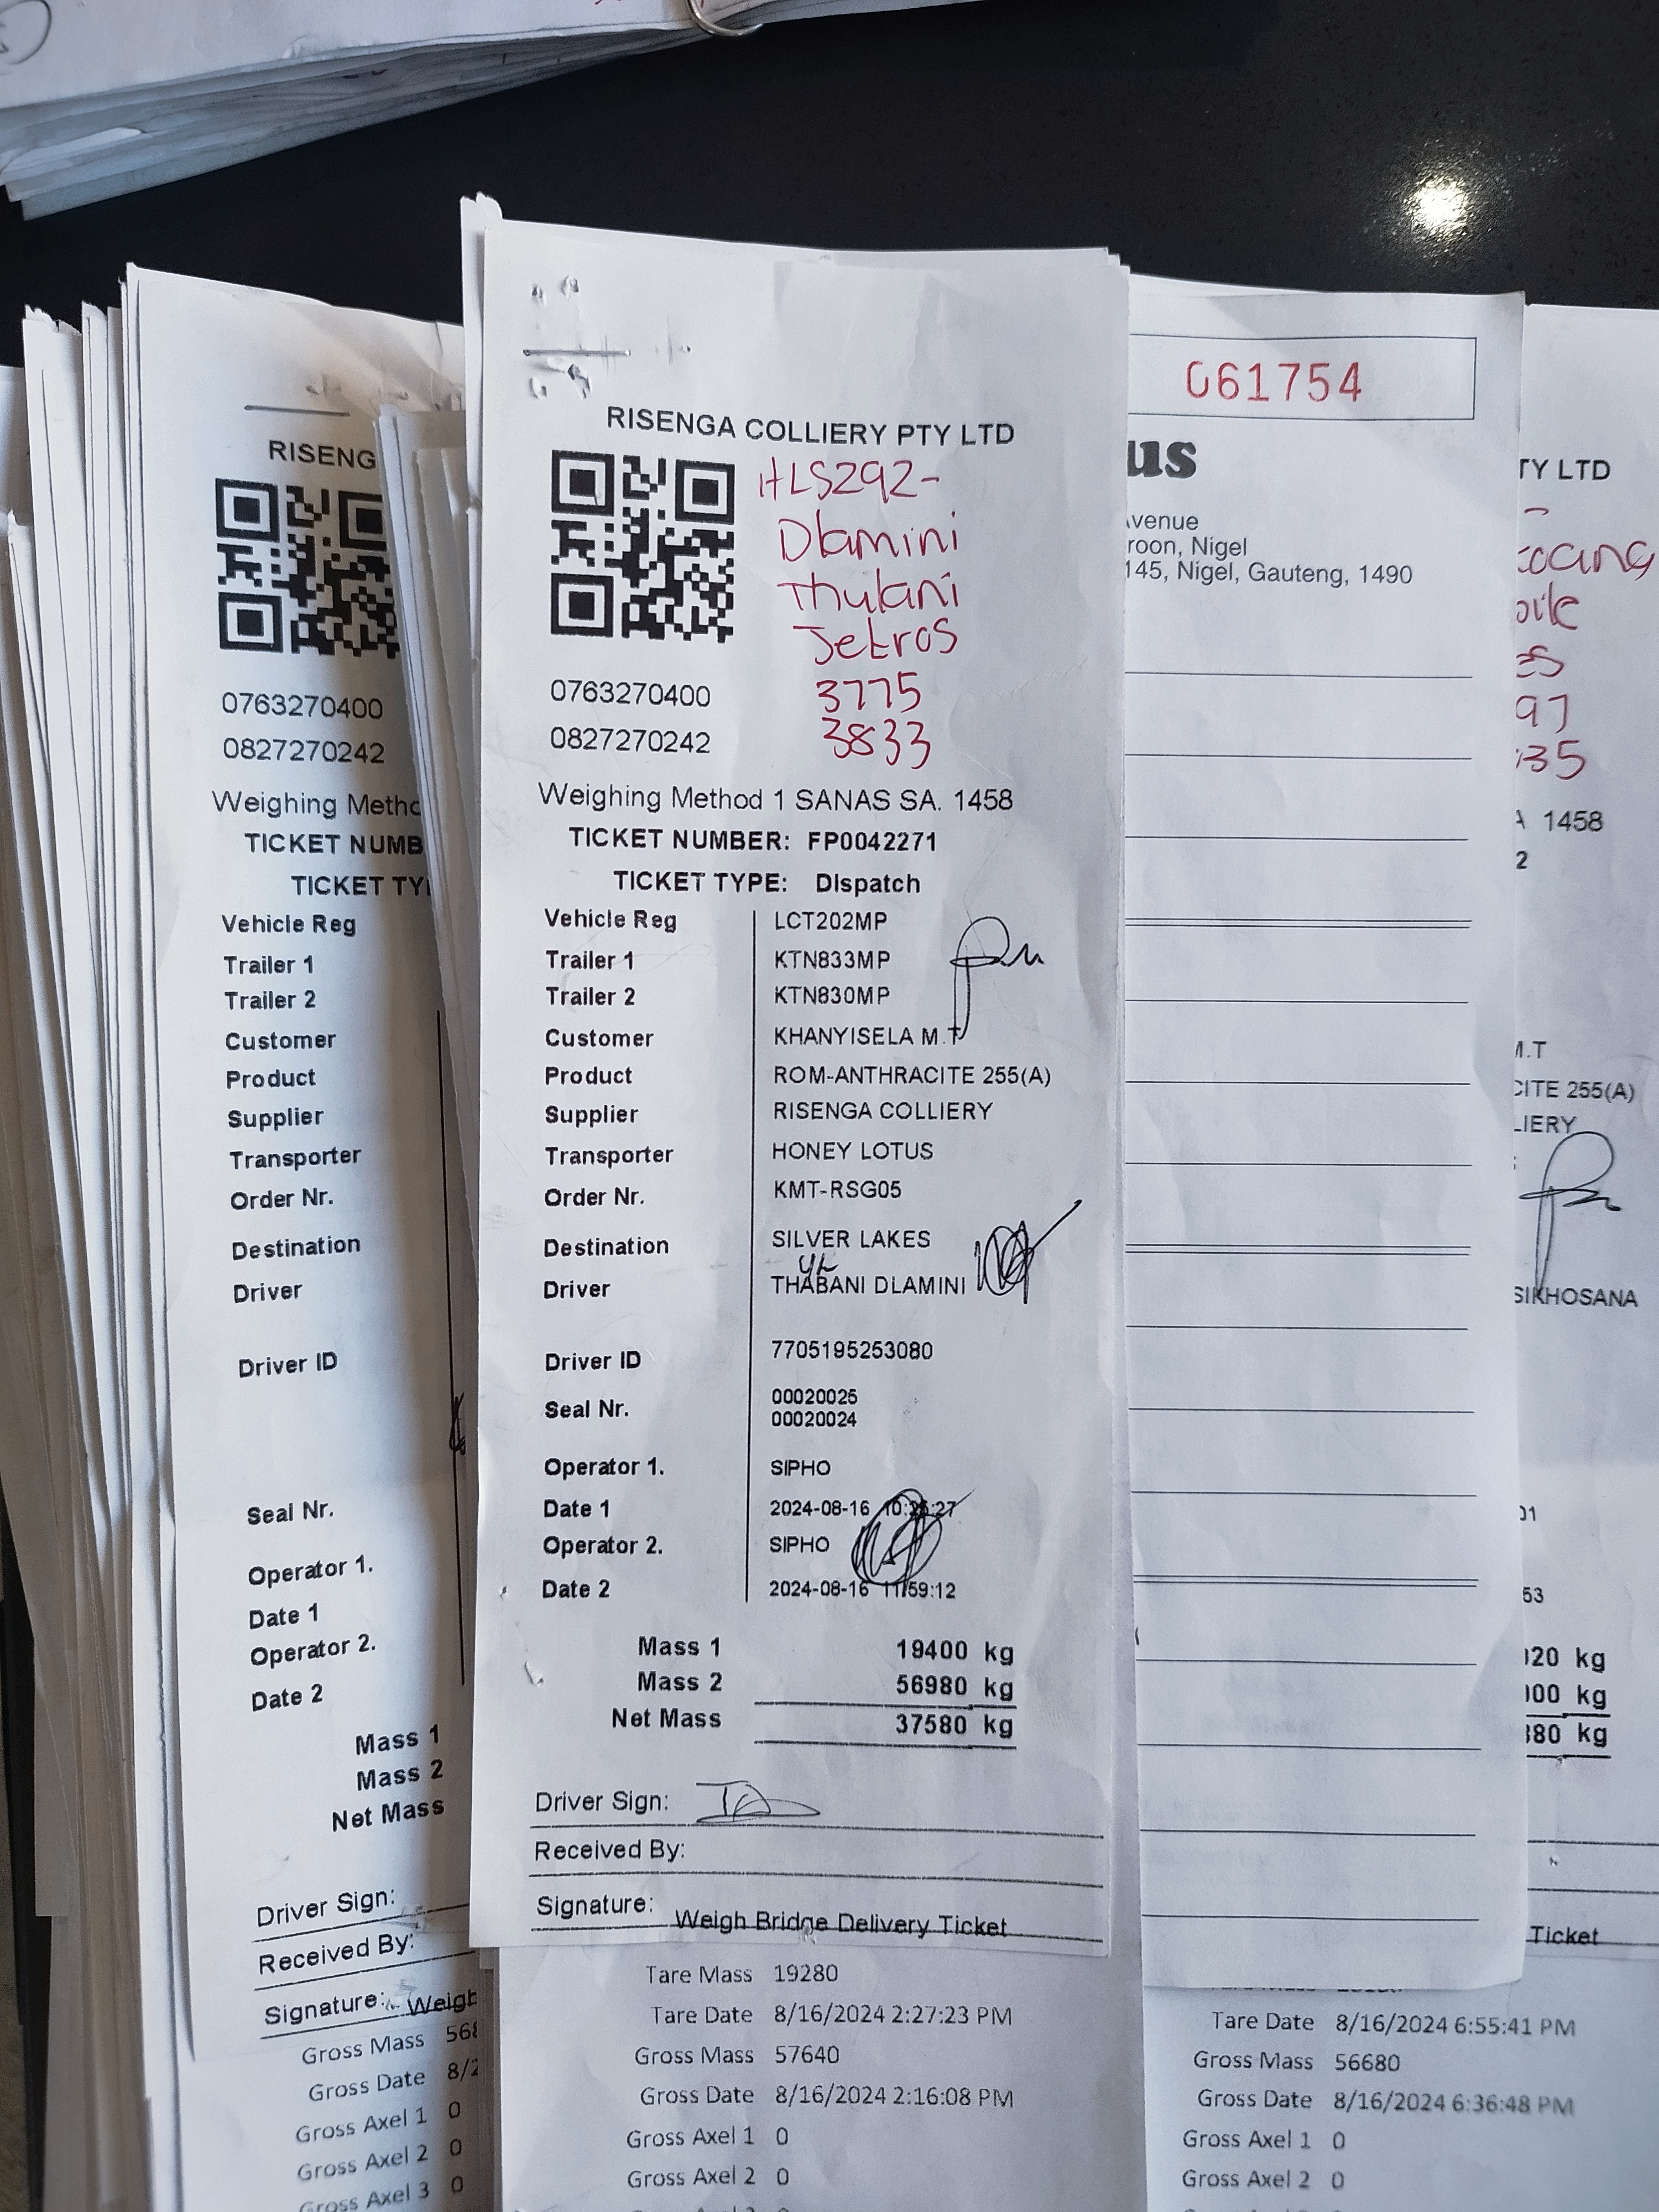 RISENGA COLLIERY PTY LTD
HLS292-
Dlamini
Thulani
Jetros
3775
3833
0763270400
0827270242
Weighing Method 1 SANAS SA. 1458
TICKET NUMBER: FP0042271
TICKET TYPE: DIspatch
Vehicle Reg LCT202MP
Trailer 1 KTN833MP
Trailer 2 KTN830MP
Customer KHANYISELA M.T
Product ROM-ANTHRACITE 255(A)
Supplier RISENGA COLLIERY
Transporter HONEY LOTUS
Order Nr. KMT-RSG05
Destination SILVER LAKES
Driver THABANI DLAMINI
Driver ID 7705195253080
Seal Nr. 00020025
00020024
Operator 1. SIPHO
Date 1 2024-08-16
Operator 2. SIPHO
Date 2 2024-08-16 11:59:12
Mass 1 19400 kg
Mass 2 56980 kg
Net Mass 37580 kg
Driver Sign:
Received By:
Signature:
Weigh Bridge Delivery Ticket
Tare Mass 19280
Tare Date 8/16/2024 2:27:23 PM
Gross Mass 57640
Gross Date 8/16/2024 2:16:08 PM
Gross Axel 1 0
Gross Axel 2 0
RISENG
0763270400
0827270242
Weighing Metho
TICKET NUMB
TICKET TY
Vehicle Reg
Trailer 1
Trailer 2
Customer
Product
Supplier
Transporter
Order Nr.
Destination
Driver
Driver ID
Seal Nr.
Operator 1.
Date 1
Operator 2.
Date 2
Mass 1
Mass 2
Net Mass
Driver Sign:
Received By:
Signature:
Weigh
Gross Mass 568
Gross Date 8/2
Gross Axel 1 0
Gross Axel 2 0
Gross Axel 3 0
061754
us
venue
roon, Nigel
145, Nigel, Gauteng, 1490
Tare Date 8/16/2024 6:55:41 PM
Gross Mass 56680
Gross Date 8/16/2024 6:36:48 PM
Gross Axel 1 0
Gross Axel 2 0
TY LTD
97
35
A 1458
2
M.T
CITE 255(A)
LIERY
SIKHOSANA
01
53
020 kg
000 kg
380 kg
Ticket